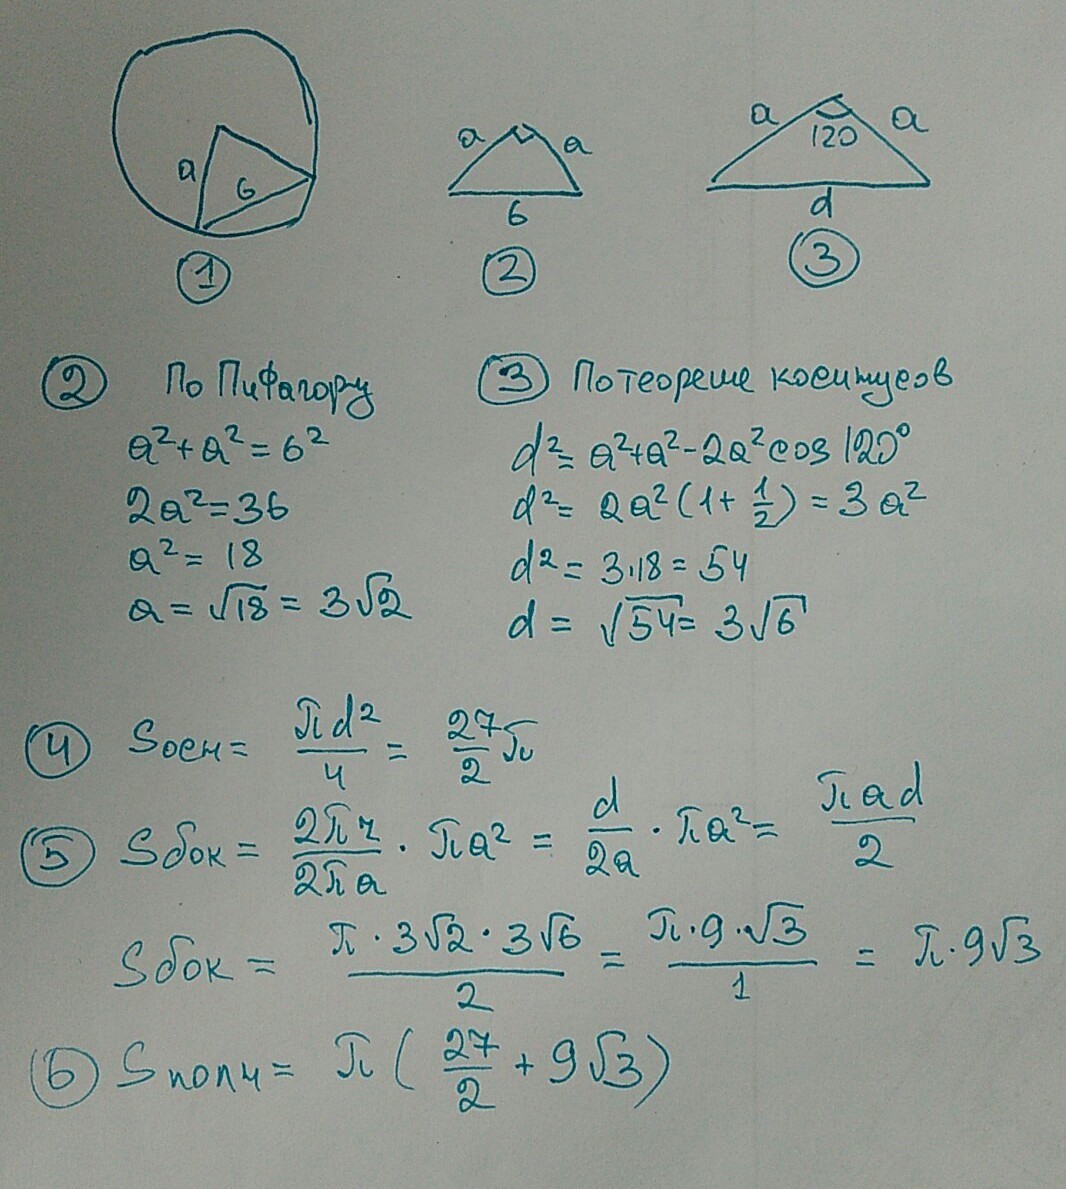 a a a a
a 6 120
6 d
① ② ③
② По Пифагору
a²+a²=6²
2a²=36
a²= 18
a = √18 = 3√2
③ По теореме косинусов
d²= a²+a²-2a²cos 120°
d²= 2a²(1+ 1/2) = 3a²
d² = 3·18 = 54
d = √54 = 3√6
④ Sосн = πd²/4 = 27/2 π
⑤ Sбок = 2πr/2πa · πa² = d/2a · πa² = πad/2
Sбок = π·3√2·3√6/2 = π·9·√3/1 = π·9√3
⑥ Sполн = π(27/2 + 9√3)